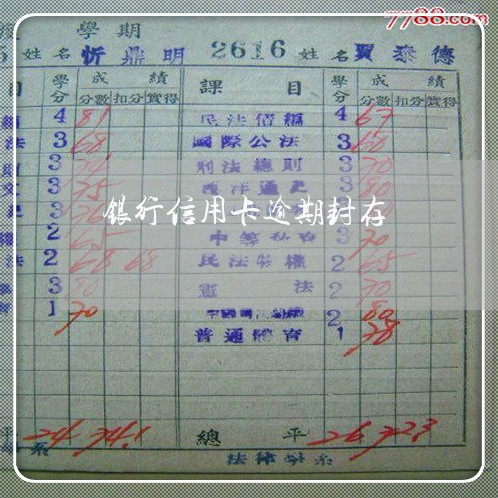 7788.com
學期
姓名 忻鼎明 2616 姓名 賈泰德
目 學分 成績 課目 學分 成績
分數 扣分 實得 分數 扣分 實得
4 81 民法債編 4 67
法 3 68 國際公法 3 60
3 刑法總則 3 70
3 75 西洋通史 3 80
銀行信用卡逾期封存
2 65 3 70
法 2 68 68 民法物權 2 65
3 80 憲法 2 70
1 70 2 80
普通體育 1 78
平 24 74.1 總平 26 72.3
系 法律學系